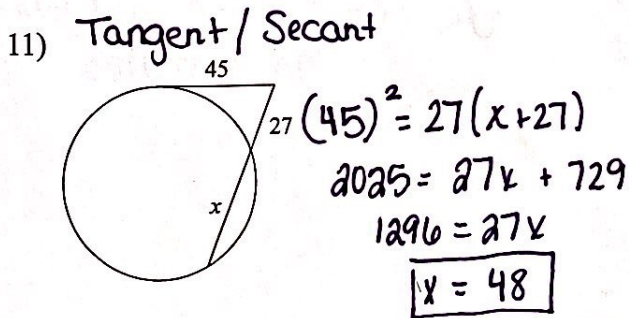 11) Tangent / Secant
45
27 (45)² = 27(x+27)
2025 = 27x + 729
x
1296 = 27x
x = 48